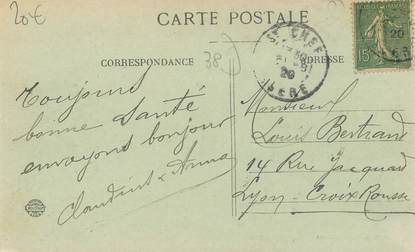 20€
CARTE POSTALE
ST CHEF
20
ISERE
15
20
CORRESPONDANCE
38
ADRESSE
Toujours
bonne santé
envoyons bonjour
Claudius & Anna
Monsieur
Louis Bertrand
14 Rue Jacquard
Lyon-Croix Rousse